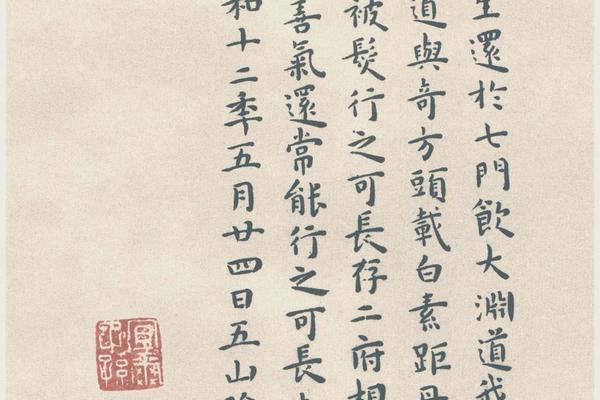 還於七門飲大淵道我
道與奇方頭載白素距丹
被髮行之可長存二府相
善氣還常能行之可長
和十二年五月廿四日五山